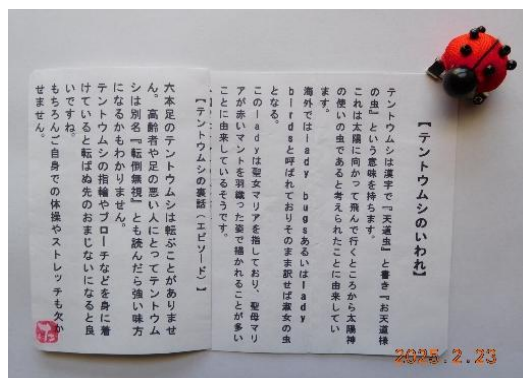 【テントウムシのいわれ】
テントウムシは漢字で『天道虫』と書き『お天道様
の虫』という意味を持ちます。
これは太陽に向かって飛んで行くところから太陽神
の使いの虫であると考えられたことに由来してい
ます。
海外ではlady bugsあるいはlady
birdsと呼ばれておりそのまま訳せば淑女の虫
となる。
このladyは聖女マリアを指しており、聖母マリ
アが赤いマントを羽織った姿で描かれることが多い
ことに由来しているそうです。
【テントウムシの裏話（エピソード）】
六本足のテントウムシは転ぶことがありませ
ん。高齢者や足の悪い人にとってテントウム
シは別名『転倒無視』とも読んだら強い味方
になるかもわかりません。
テントウムシの指輪やブローチなどを身に着
けていると転ばぬ先のおまじないになると良
いですね。
もちろんご自身での体操やストレッチも欠か
せません。
2025.2.23